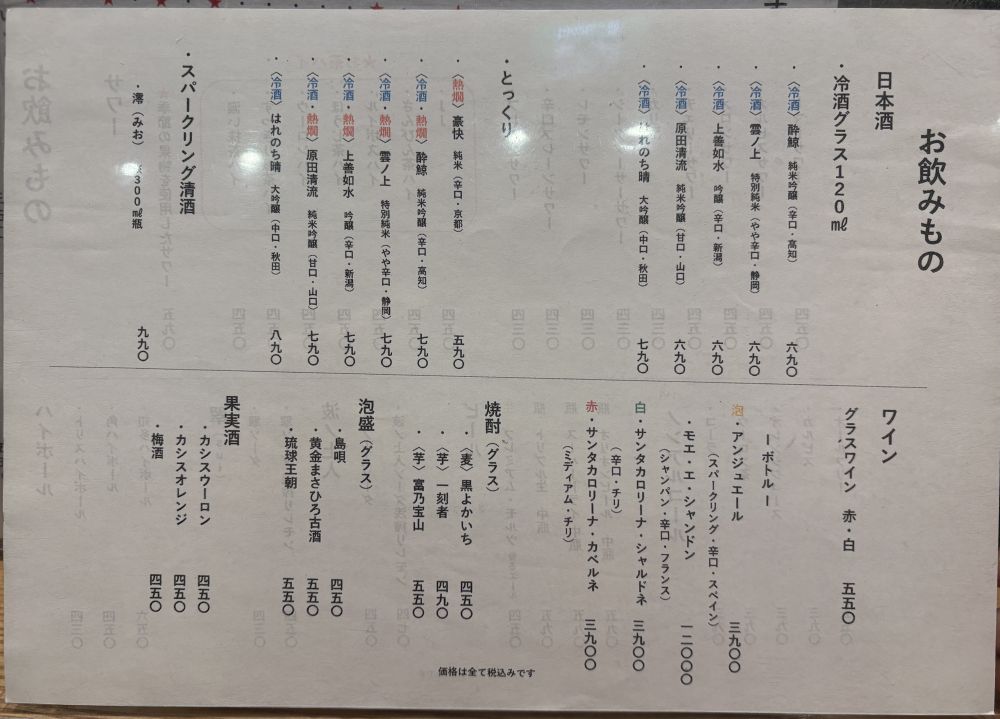 お飲みもの
日本酒
・冷酒グラス120㎖
・〈冷酒〉酔鯨 純米吟醸（辛口・高知） 六九〇
・〈冷酒〉雲ノ上 特別純米（やや辛口・静岡） 六九〇
・〈冷酒〉上善如水 吟醸（辛口・新潟） 六九〇
・〈冷酒〉原田清流 純米吟醸（甘口・山口） 六九〇
・〈冷酒〉はれのち晴 大吟醸（中口・秋田） 七九〇
・とっくり
・〈熱燗〉豪快 純米（辛口・京都） 五九〇
・〈冷酒・熱燗〉酔鯨 純米吟醸（辛口・高知） 七九〇
・〈冷酒・熱燗〉雲ノ上 特別純米（やや辛口・静岡） 七九〇
・〈冷酒・熱燗〉上善如水 吟醸（辛口・新潟） 七九〇
・〈冷酒・熱燗〉原田清流 純米吟醸（甘口・山口） 七九〇
・〈冷酒〉はれのち晴 大吟醸（中口・秋田） 八九〇
・スパークリング清酒
・澪（みお） ※300㎖瓶 九九〇
ワイン
グラスワイン 赤・白 五五〇
ーボトルー
泡・アンジュエール 三九〇〇
（スパークリング・辛口・スペイン）
・モエ・エ・シャンドン 一二〇〇〇
（シャンパン・辛口・フランス）
白・サンタカロリーナ・シャルドネ 三九〇〇
（辛口・チリ）
赤・サンタカロリーナ・カベルネ 三九〇〇
（ミディアム・チリ）
焼酎（グラス）
・〈麦〉黒よかいち 四五〇
・〈芋〉一刻者 四九〇
・〈芋〉富乃宝山 五五〇
泡盛（グラス）
・島唄 四五〇
・黄金まさひろ古酒 五五〇
琉球王朝 五五〇
果実酒
・カシスウーロン 四五〇
・カシスオレンジ 四五〇
・梅酒 四五〇
価格は全て税込みです